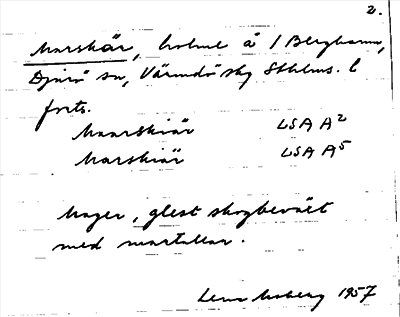 2.
Marskär, holme å 1 Berghamn,
Djurö sn, Värmdö skg Sthlms. l
forts.
Maarskiär LSA A2
Marskiär LSA A5
Mager, glest skogbevuxt
med martallar.
Lena Moberg 1957